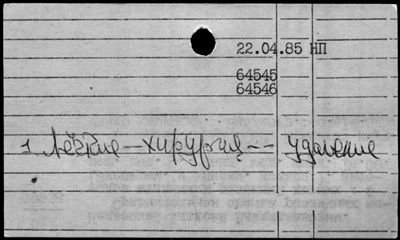 22.04.85 НП
64545
64546
1 Лёгкие — хирургия -- удаление